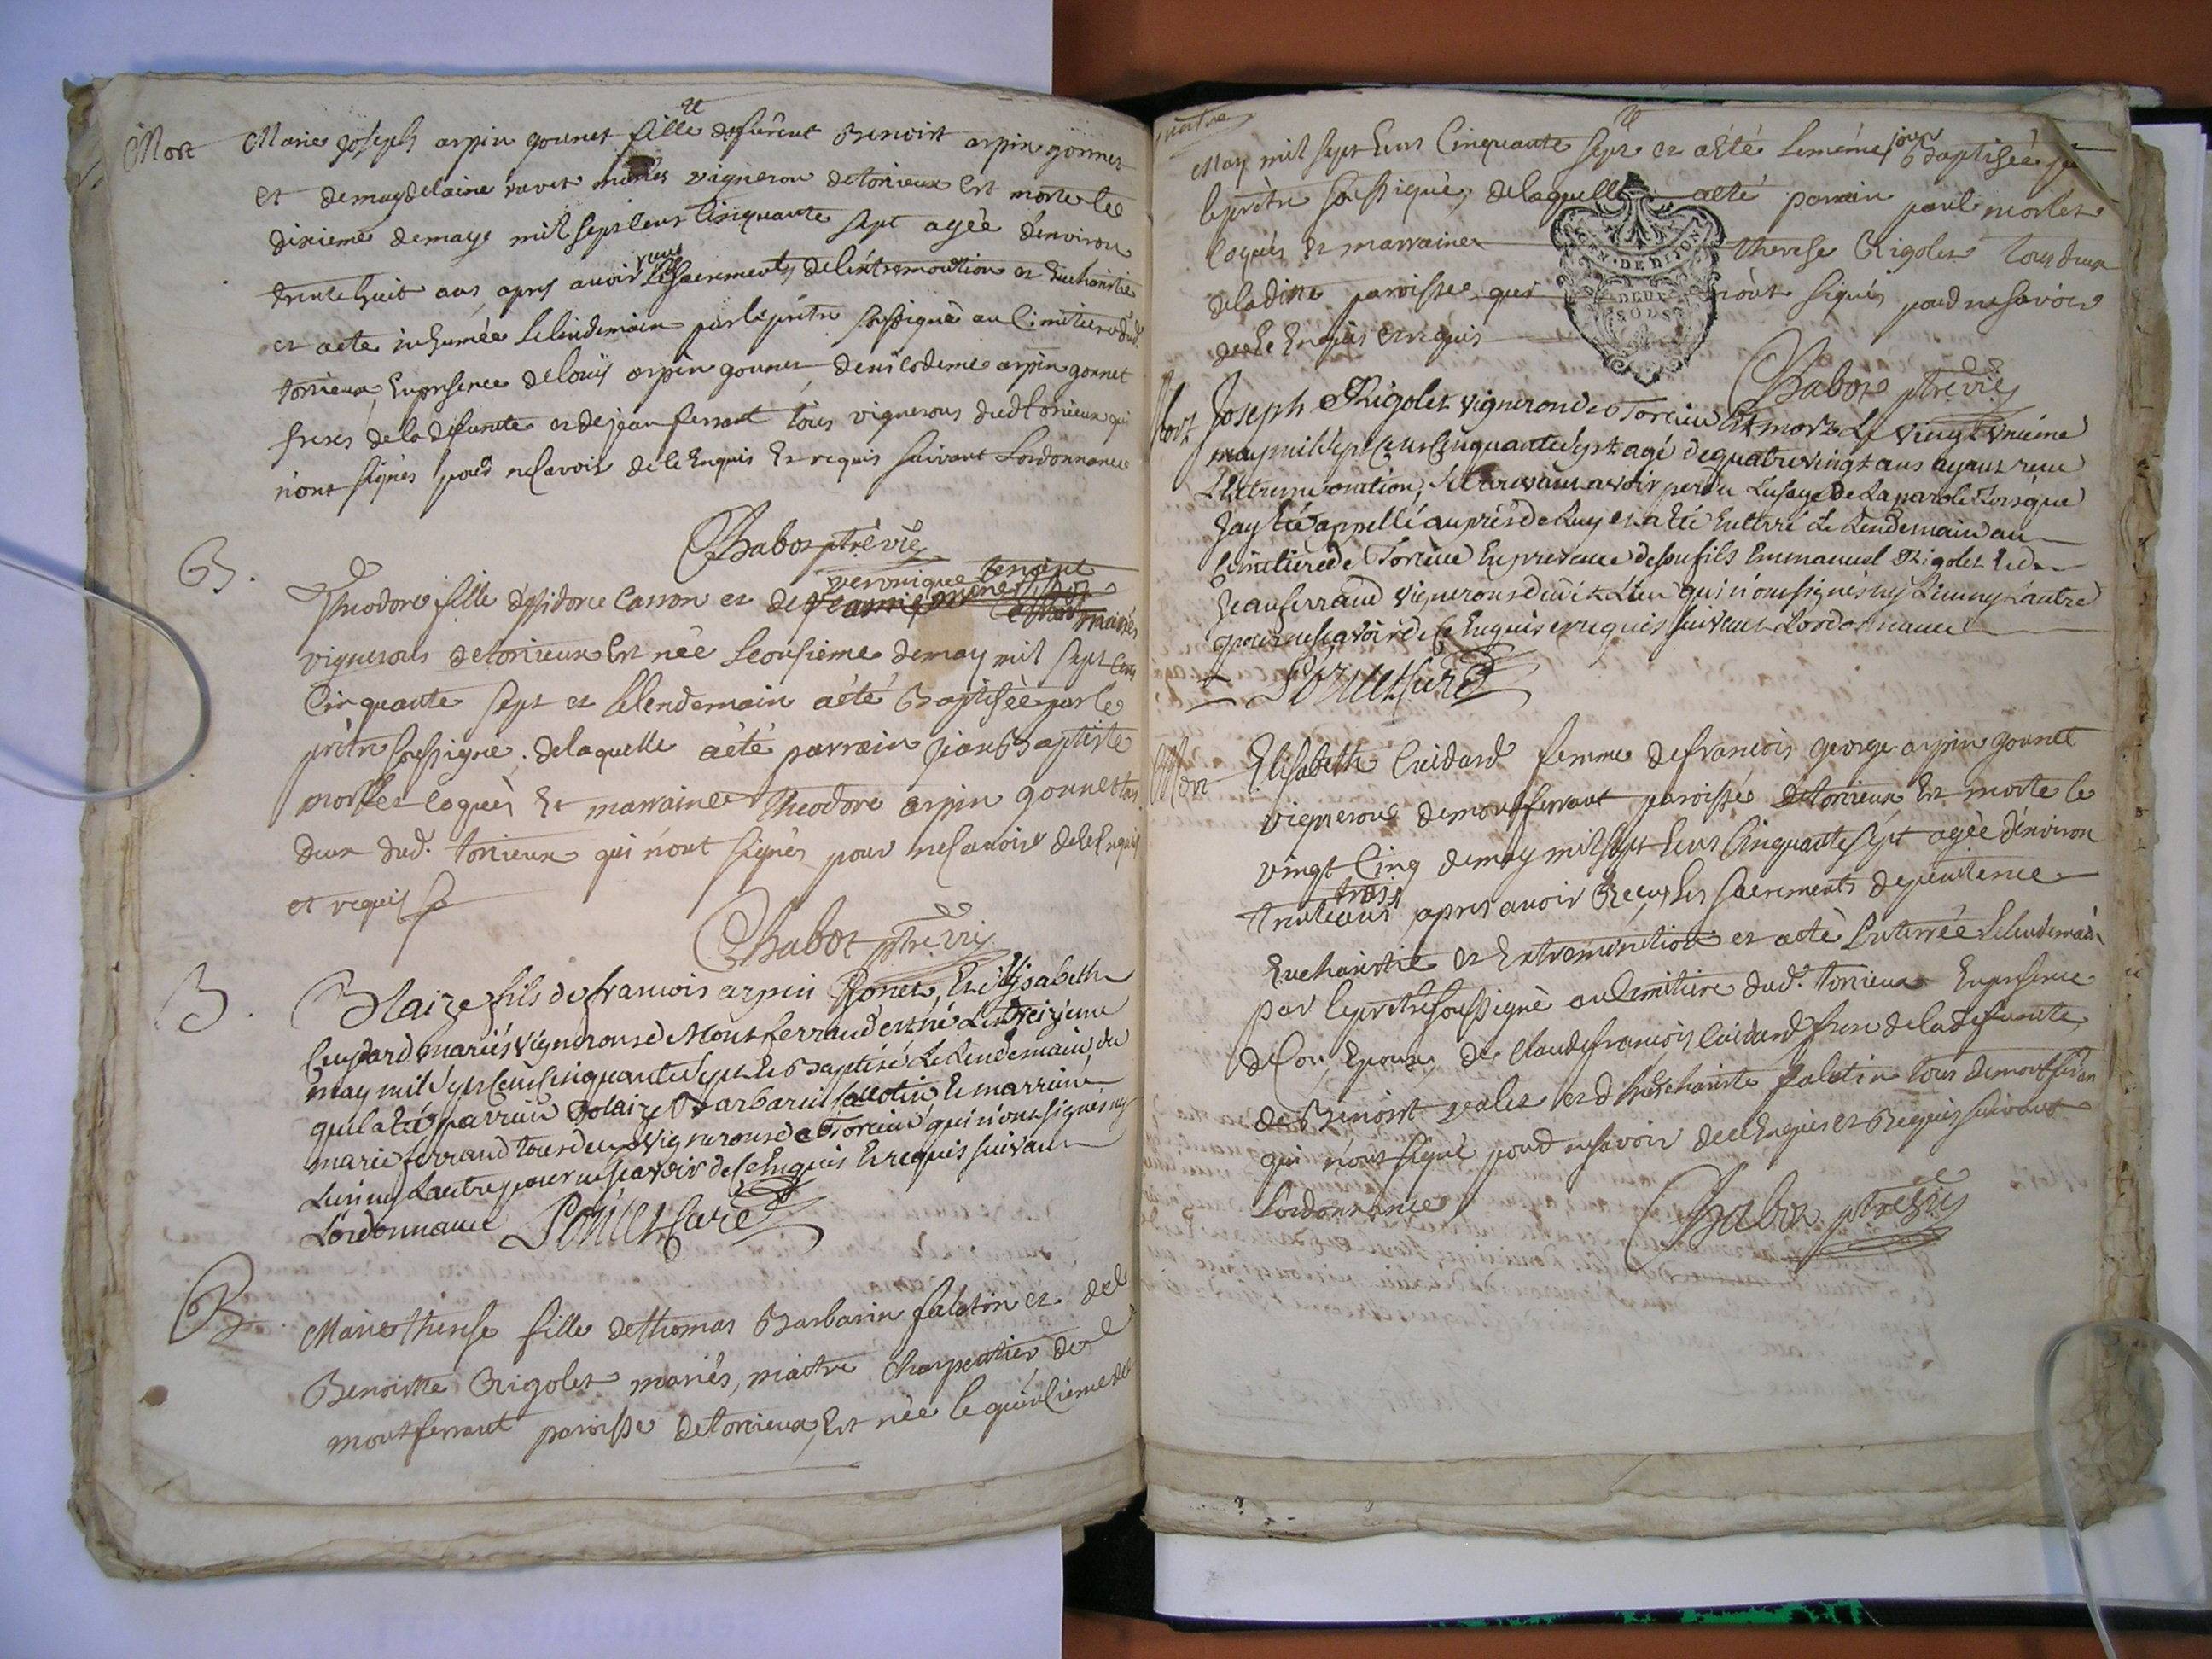 Mort
Marie joseph arpin gonnet fille de furent Benoist arpin gonnet
et de magdelaine ravet mariés vigneron de torcieux est morte le
dixieme de maye mil sept cens cinquante sept agée d'environ
trente huit ans, apres avoir reçu les sacrements de lextremontion et Eucharistie
et a eté inhumée le lendemain par le prêtre soussigné au cimitiere dud.
torcieux En presence de louis arpin gonnet, de nicodeme arpin gonnet
freres de la defunte et de jean ferrant tous vignerons dud torcieux qui
n'ont signés pour ne savoir de ce Enquis Et requis suivant Lordonnance
Chabot ptre vic
B.
veronique benoist
Theodore fille d'isidore Carron et de mariés
vignerons de torcieux Est née le onsieme de may mil sept cens
Cinquante sept et le lendemain a eté Baptisée par le
prêtre soussigné. de laquelle a eté parrain jean Baptiste
morlet coquis Et marraine Theodore arpin gonnet tous
deux dud. torcieux qui n'ont signés pour ne savoir de ce Enquis
et requis
Chabot ptre vic
B.
Blaize fils de francois arpin Gonet, Et Elisabeth
Cuidard mariés vignerons de Montferrand est né Le treizieme
may mil sept cens cinquante sept Et Baptisé Le Lendemain, du
quel a eté parrain Blaize Barbarin falotin Et marraine
marie ferrand tous deux vignerons de Torcieu qui n'ont signés ny
L'un ny L'autre pour ne scavoir de ce Enquis Et requis suivant
L'ordonnance Curé
B.
Marie therese fille de thomas Barbarin falotin et de
Benoiste Rigolet mariés, maitre charpentier de
montferrant paroisse de torcieux, Est née le quinsieme de
may mil sept cens Cinquante sept et a eté le méme jour baptisée par
le prêtre soussigné, de laquelle a eté parrain paul morlet
coquis et marraine therese Rigolet tous deux
de la ditte paroisse qui n'ont signés pour ne savoir
de ce Enquis et requis
GEN. DE DIJON
DEUX
SOLS
Chabot ptre vic
Mort
Joseph Rigolet vigneron de Torcieu Est mort Le vingt unième
may mil sept cens cinquante sept agé de quatre vingt ans ayant reçu
L'extremeonction, se trouvant avoir perdu L'usage de La parole Lorsque
J'ay été appellé auprès de Luy et a été Enterré Le Lendemain au
cimitiere de Torcieu En presence de son fils Emmanuel Rigolet Et de
Jean ferrand vignerons dudit Lieu qui n'ont signés ny L'un ny L'autre
pour ne scavoir de ce Enquis et requis suivant L'ordonnance
Curé
Mort
Elisabeth Cuidard femme de francois george arpin gonnet
vigneron de montferrant paroisse de torcieux Est morte le
vingt Cinq de may mil sept cens Cinquante sept agée d'environ
trente trois ans, apres avoir Reçu les sacrements de penitence
Eucharistie et Extremonction et a eté Enterrée le lendemain
par le prêtre soussigné au cimitiere dud. torcieux En presence
de son Epoux, de claude francois Cuidard frere de la defunte
de Benoist valet et d'anthelme falotin tous de montferran
qui n'ont signé pour ne savoir de ce Enquis et Requis suivant
Lordonnance
Chabot ptre vic